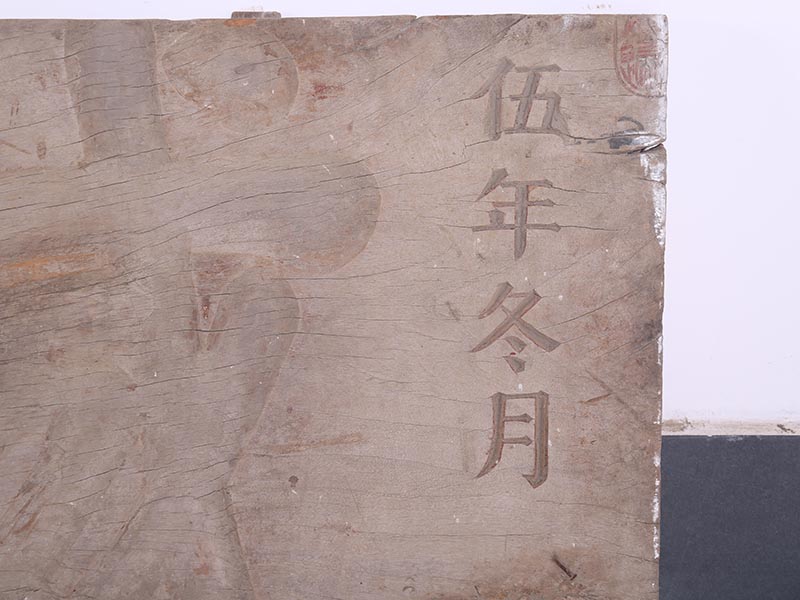 伍年冬月